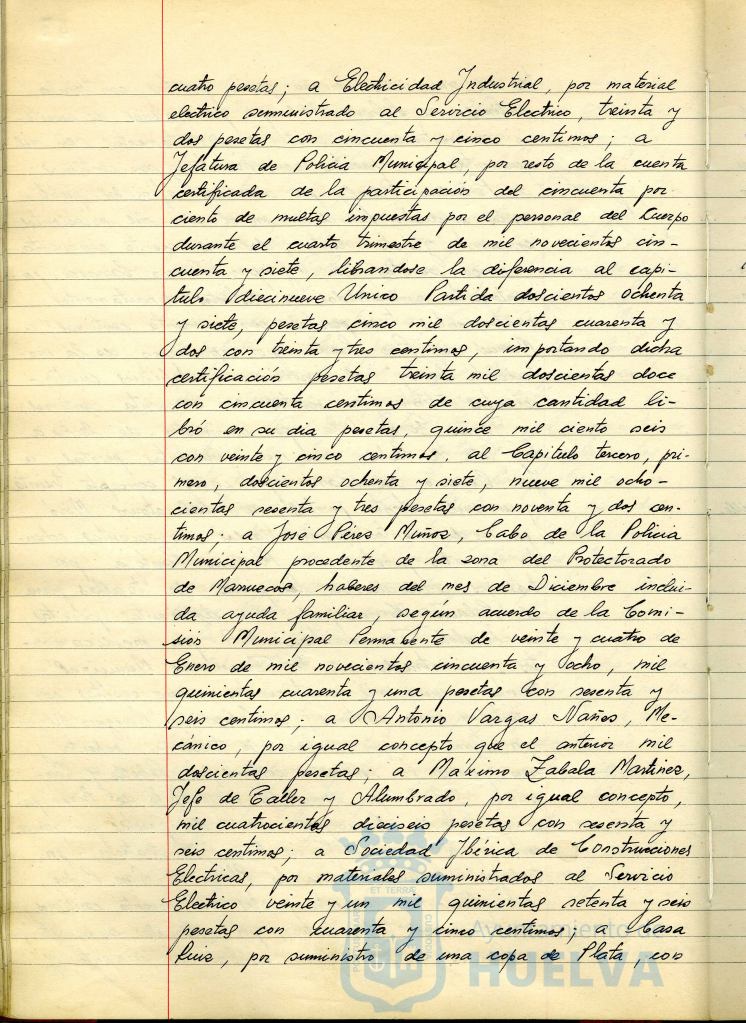 cuatro pesetas; a Electricidad Industrial, por material
electrico semministrado al Servicio Electrico, treinta y
dos pesetas con cincuenta y cinco centimos; a
Jefatura de Policia Municipal, por resto de la cuenta
certificada de la participación del cincuenta por
ciento de multas impuestas por el personal del Cuerpo
durante el cuarto trimestre de mil novecientos cin-
cuenta y siete, librandose la diferencia al capi-
tulo diecinueve Unico Partida doscientos ochenta
y siete, pesetas cinco mil doscientas cuarenta y
dos con treinta y tres centimos, importando dicha
certificación pesetas treinta mil doscientas doce
con cincuenta centimos de cuya cantidad li-
bró en su dia pesetas, quince mil ciento seis
con veinte y cinco centimos, al Capitulo tercero, pri-
mero, doscientos ochenta y siete, nueve mil ocho-
cientas sesenta y tres pesetas con noventa y dos cen-
timos; a José Pérez Muñoz, Cabo de la Policia
Municipal procedente de la zona del Protectorado
de Marruecos, haberes del mes de Diciembre inclui-
da ayuda familiar, según acuerdo de la Comi-
sión Municipal Permanente de veinte y cuatro de
Enero de mil novecientos cincuenta y ocho, mil
quinientas cuarenta y una pesetas con sesenta y
seis centimos; a Antonio Vargas Naños, Me-
cánico, por igual concepto que el anterior mil
doscientas pesetas; a Máximo Zabala Martinez,
Jefe de Taller y Alumbrado, por igual concepto,
mil cuatrocientas dieciseis pesetas con sesenta y
seis centimos; a Sociedad Ibérica de Construcciones
Electricas, por materiales suministrados al Servicio
Electrico veinte y un mil quinientas setenta y seis
pesetas con cuarenta y cinco centimos; a Casa
Ruiz, por suministro de una copa de Plata, con
ET TERRA
Ayuntamiento de
HUELVA